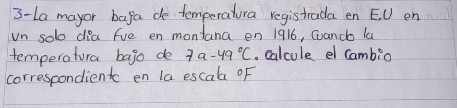 3-La mayor baja de temperatura registrada en E.U en
un solo dia fue en montana en 1916, Cuando la
temperatura bajo de 7 a -49 °C. Calcule el Cambio
correspondiente en la escala °F